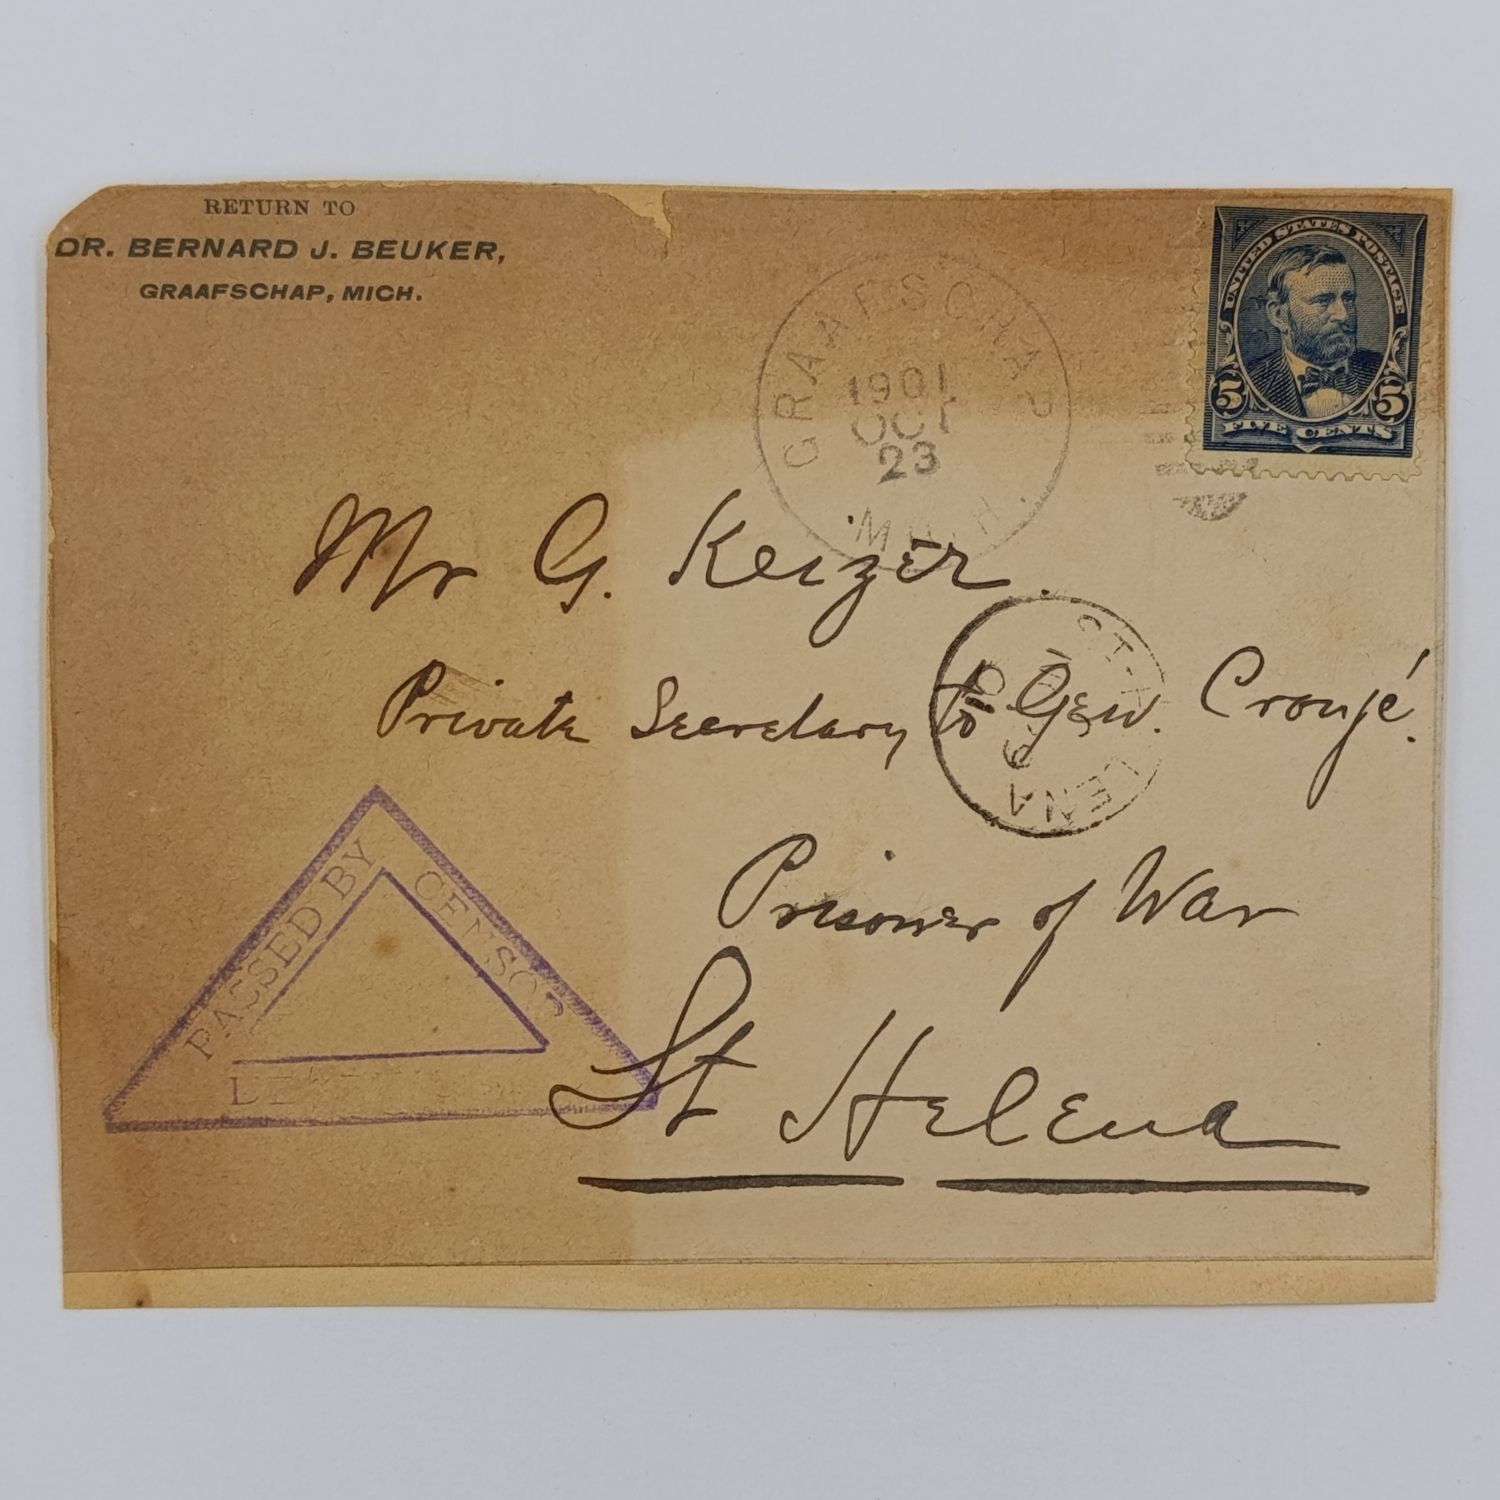 RETURN TO
DR. BERNARD J. BEUKER,
GRAAFSCHAP, MICH.
UNITED STATES POSTAGE
5 5
FIVE CENTS
GRAAFSCHAP
1901
OCT
23
MICH.
Mr G. Keizer.
Private Secretary to Gen. Cronjé.
Prisoner of War
St Helena
ST.
LENA
PASSED BY CENSOR